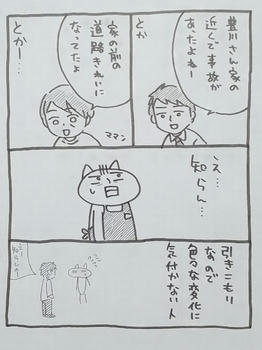 豊川さん家の
近くで事故が
あったよねー
とか
家の前の
道路きれいに
なってたよ
とかー…
ママン
え…
知らん…
引きこもり
なので
色々な変化に
気付かない人
知らんの?